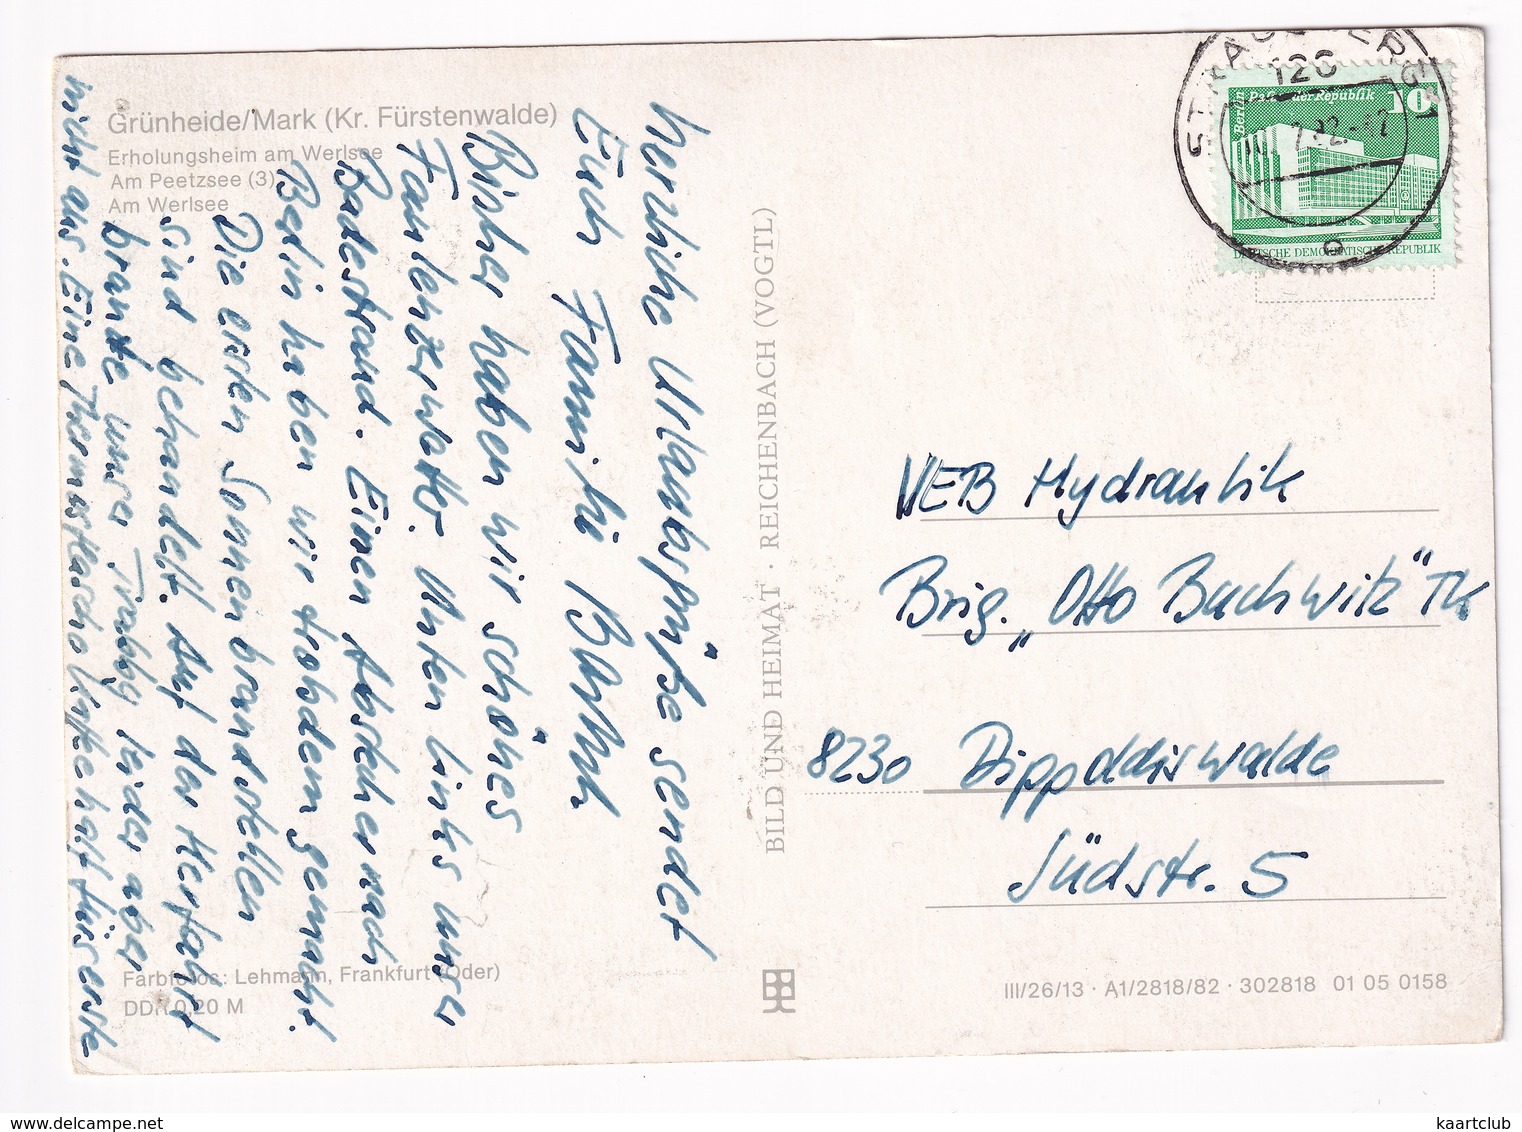 Grünheide/Mark (Kr. Fürstenwalde)
Erholungsheim am Werlsee
Am Peetzsee (3)
Am Werlsee
Herzliche Urlaubsgrüße sendet
Euch Familie
Bisher haben wir schönes
Faulenzerwetter. Unten links unser
Badestrand. Einen Abstecher nach
Berlin haben wir trotzdem gemacht.
Die ersten Sonnenbrandstellen
sind behandelt. Auf der Herfahrt
brauste unser Trabby leider aber
nicht aus. Eine Thermosflasche Kaffee half fürs erste
Farbfotos: Lehmann, Frankfurt (Oder)
DDR 0,20 M
BILD UND HEIMAT · REICHENBACH (VOGTL)
STRAUSBERG 1
126
7.82.-17
Berlin Palast der Republik
10
DEUTSCHE DEMOKRATISCHE REPUBLIK
VEB Hydraulik
Brig. „Otto Buchwitz"
8230 Dippoldiswalde
Südstr. 5
III/26/13 · A1/2818/82 · 302818 01 05 0158
delcampe.net
kaartclub